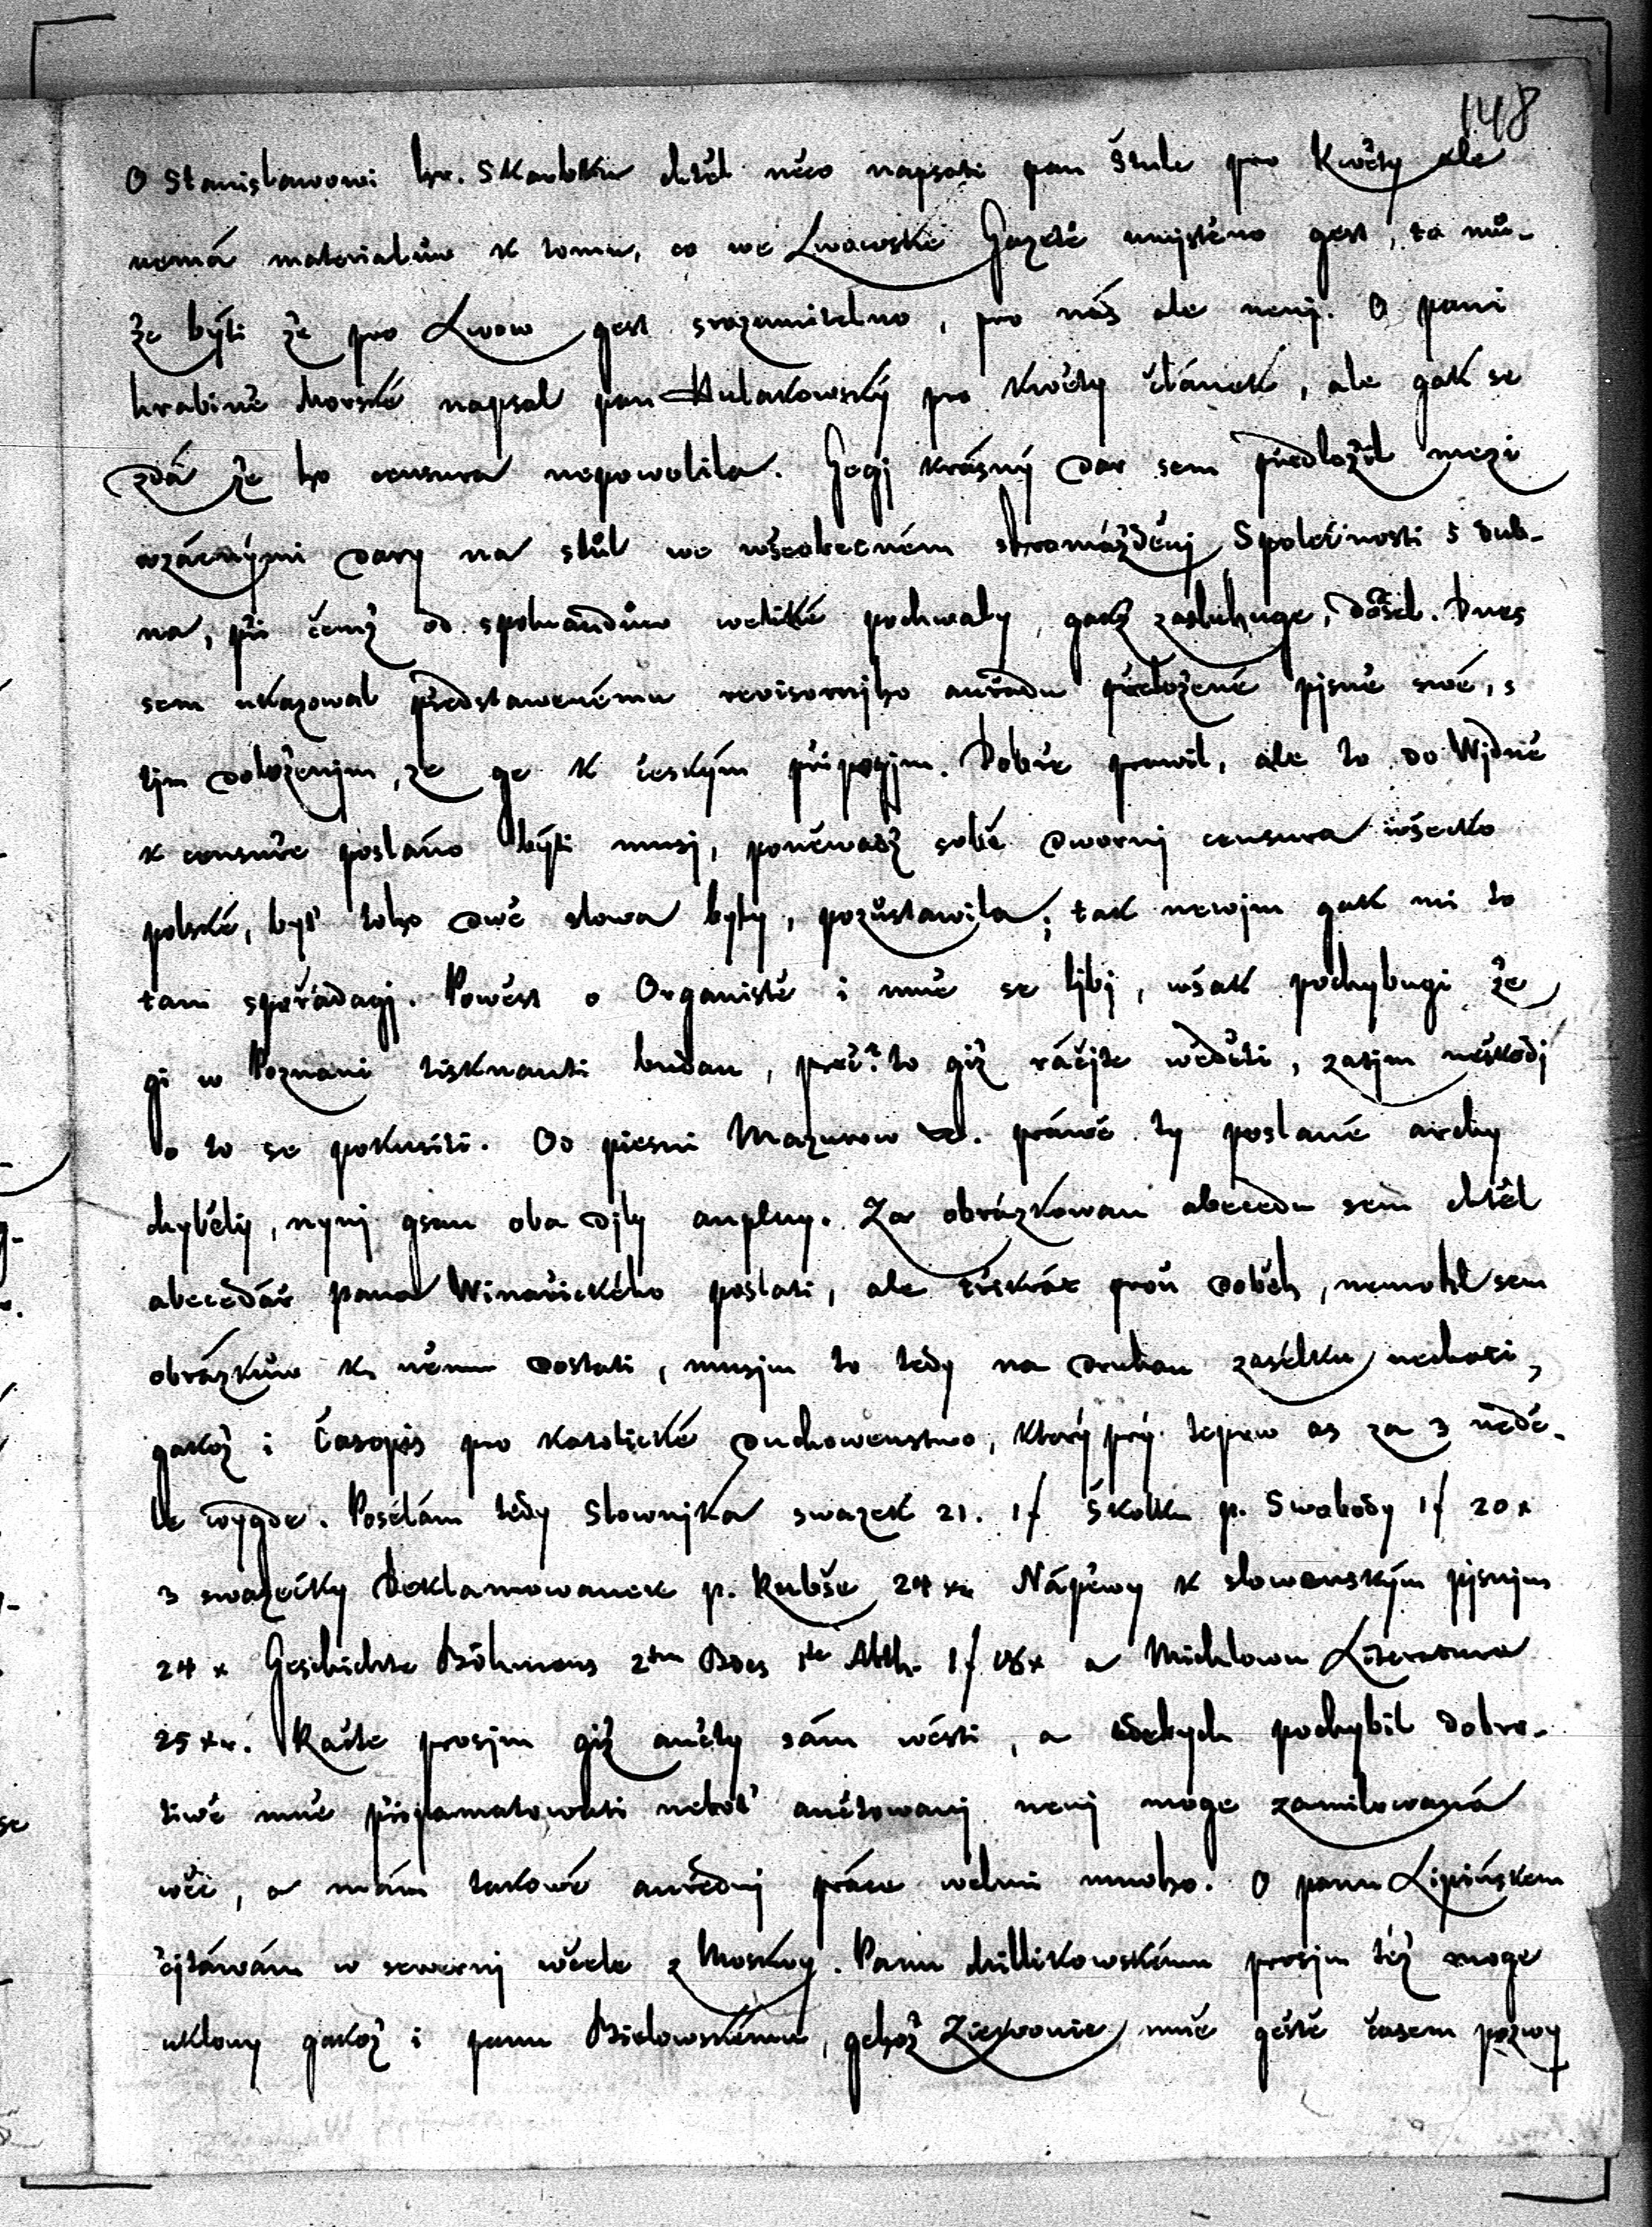 148
O Stanisławowi hr. Skarbku chtěl něco napsati pan Štulc pro Kwěty ale
nemá materialůw k tomu, co we Lwowské Gazetě umjstěno gest, to mů-
že býti že pro Lwow gest srozumitelno, pro nás ale nenj. O panj
hraběně Morské napsal pan Hulakowský pro Kwěty článek, ale gak se
zdá že ho censura nepowolila. Gegj krásný dar sem předložil mezi
wzácnými dary na stůl we wšeobecném shromážděnj Společnosti 5 dub-
na, při čemž od spoluaudůw weliké pochwaly, gakž zasluhuge, došel. Dnes
sem ukazowal představenému revisornjho auřadu přeložené pjsně swé, s
tjm doloženjm, že ge k českým připogjm. Dobře prawil, ale to do Wjdně
k censuře posláno býti musj, poněwadž sobě dwornj censura wšecko
polské, byť toho dwě slowa byly, pozůstawila; tak newjm gak mi to
tam spořádagj. Powěst o Organistě i mně se ljbj, wšak pochybugi že
gi w Poznani tisknauti budau, proč? to giž ráčjte wěděti, zatjm neškodj
o to se pokusiti. Od piesni Mazurow práwě ty poslané archy
chyběly, nynj gsau oba djly auplny. Za obrázkowau abecedu sem chtěl
abecedář pana Winařického poslati, ale třikrát proň doběh, nemohl sem
obrázkůw k němu dostati, musjm to tedy na druhau zasélku nechati,
gakož i Časopis pro katolické duchowenstwo, který prý teprw as za 3 nedě-
le wygde. Posélám tedy Slownjka swazek 21. 1 f Školku p. Swobody 1 f 20 x
3 swazečky Deklamowanek p. Rubše 24 xr Nápěwy k slowenským pjsnjm
24 x Geschichte Böhmens 2ten Bdes 1te Abth. 1 f 48 x a Michlowu Literaturu
25 xr. Račte prosjm giž aučty sám wésti, a kdebych pochybil dobro-
tiwě mně připamatowati neboť aučtowanj nenj moge zamilowaná
wěc, a mám takowé auřednj práce welmi mnoho. O panu Lipińskem
čjtáwám w sewernj wčele z Moskwy. Panu Chillikowskému prosjm též moge
uklony gakož i panu Bielowskému, gehož Ziewonie mně geště časem pozwy